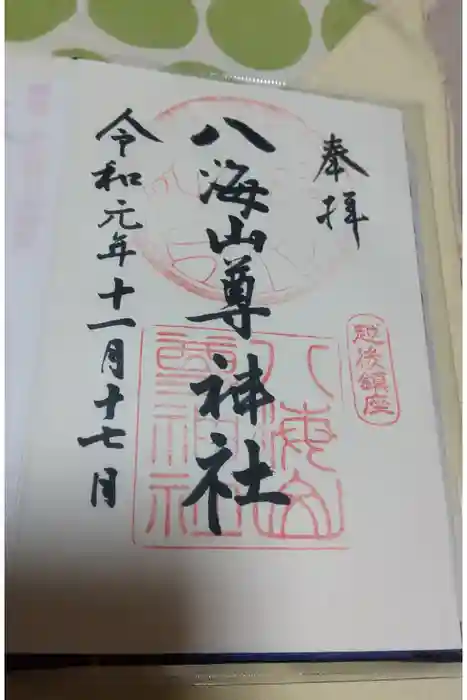 奉拝
越後鎮座
八海山尊神社
八海山尊神社
令和元年十一月十七月